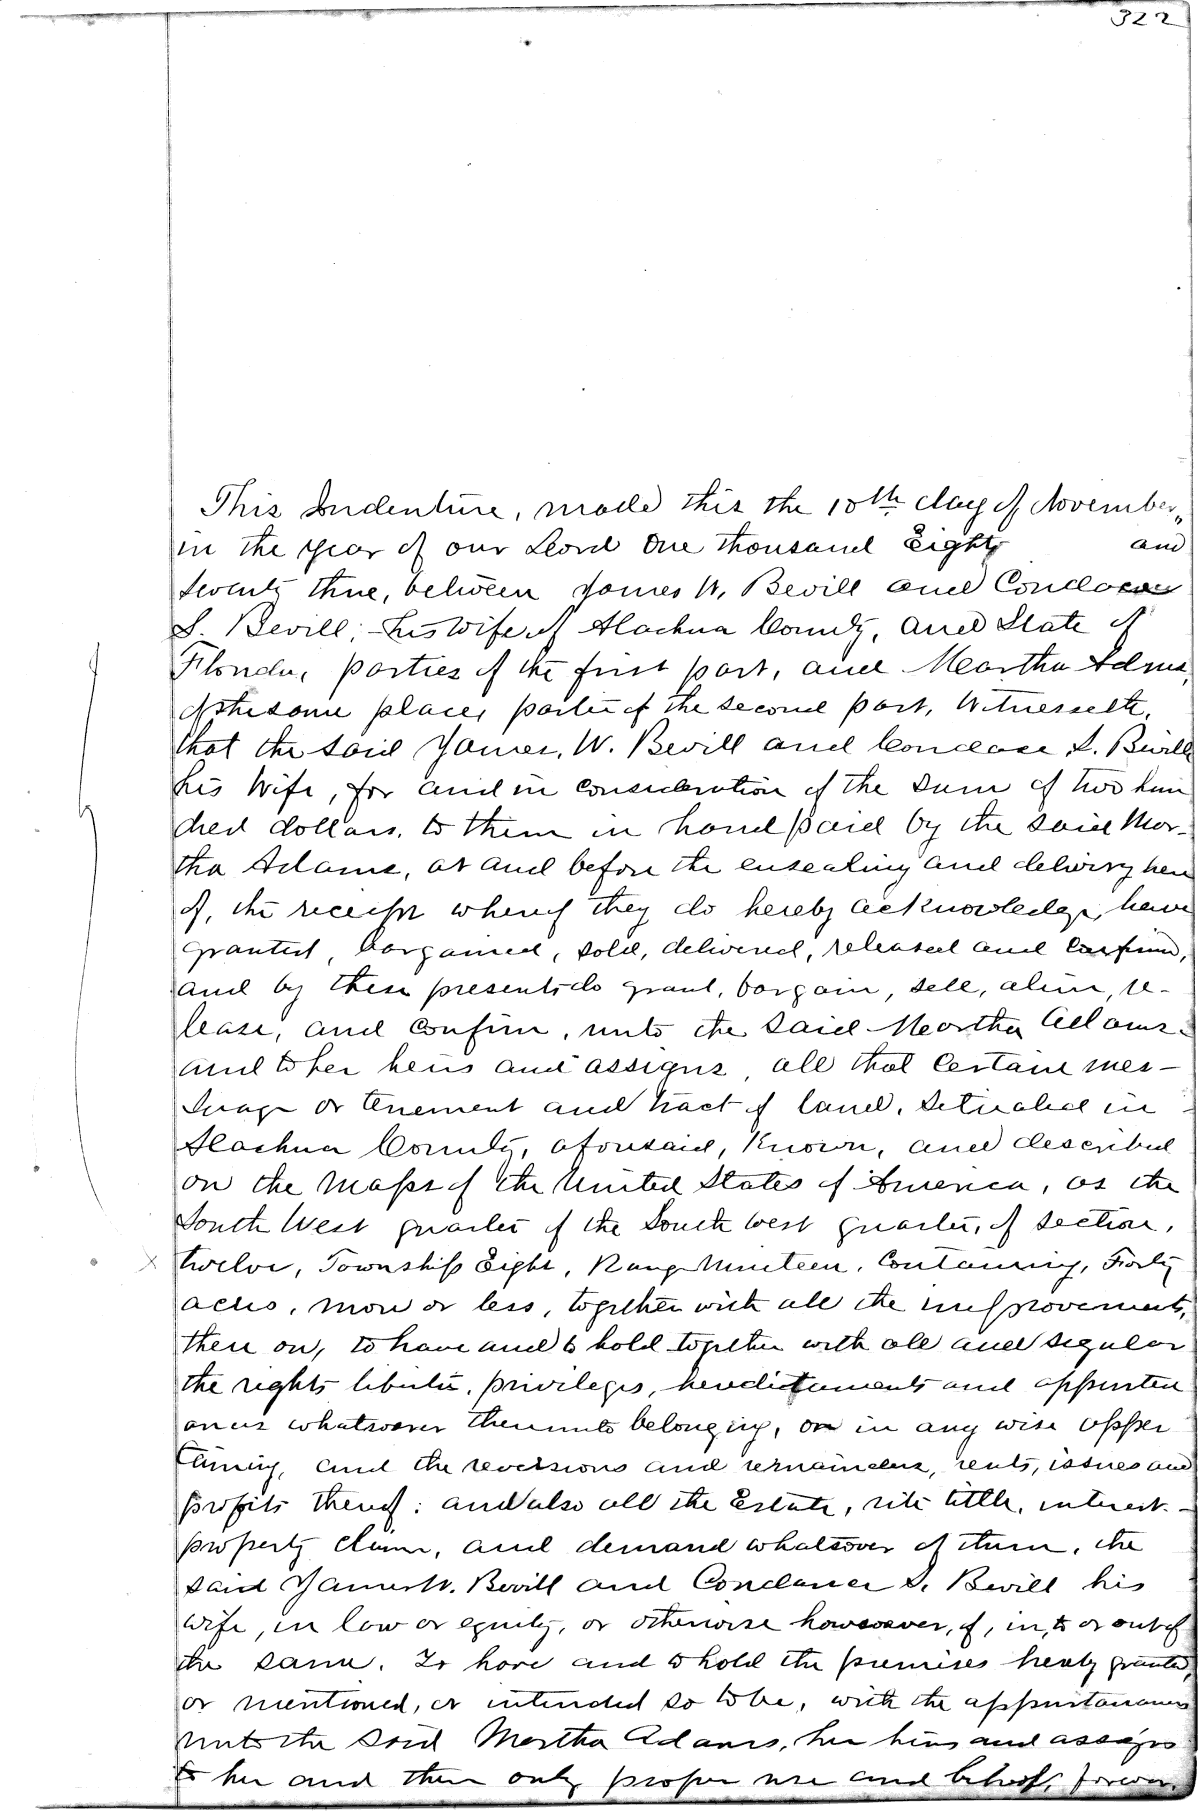 322
This Indenture, made this the 10th day of November,
in the year of our Lord One thousand Eight and
seventy three, between James W. Bevill and
S. Bevill, his Wife of Alachua County, and State of
Florida, parties of the first part, and Martha Adms,
of the same place, partie of the second part, Witnesseth,
that the said James, W. Bevill and Condace S. Bevill
his Wife, for and in consideration of the sum of two hun
dred dollars, to them in hand paid by the said Mar-
tha Adams, at and before the ensealing and delivery here
of, the receipt whereof they do hereby acknowledge, have
granted, bargained, sold, delivered, released and Confirm,
and by these presents do grant, bargain, sell, alien, re-
lease, and Confirm, unto the said Martha Adams.
and to her heirs and assigns, all that Certain mes-
suage or tenement and tract of land, situated in
Alachua County, aforesaid, Known, and described
on the Maps of the United States of America, as the
South West quarter of the South west quarter, of section,
twelve, Township Eight, Range Nineteen, Containing, Forty
acres, more or less, together with all the improvements,
there on, to have and to hold together with all and segular
the rights liberties, privileges, heredictaments and appurten
ances whatsoever thereunto belonging, or in any wise apper
taining, and the reversions and remainders, rents, issues and
profits thereof: and also all the Estate, rite tittle, interest-
property claim, and demand whatsoever of them, the
said James W. Bevill and Condacer S. Bevill his
wife, in law or equity, or otherwise howsoever, of, in, to or out of
the same. To have and to hold the premises hereby granted,
or mentioned, or intended so to be, with the appurtanances
unto the said Martha Adams, her heirs and assigns
to her and their only proper use and behoof, forever.